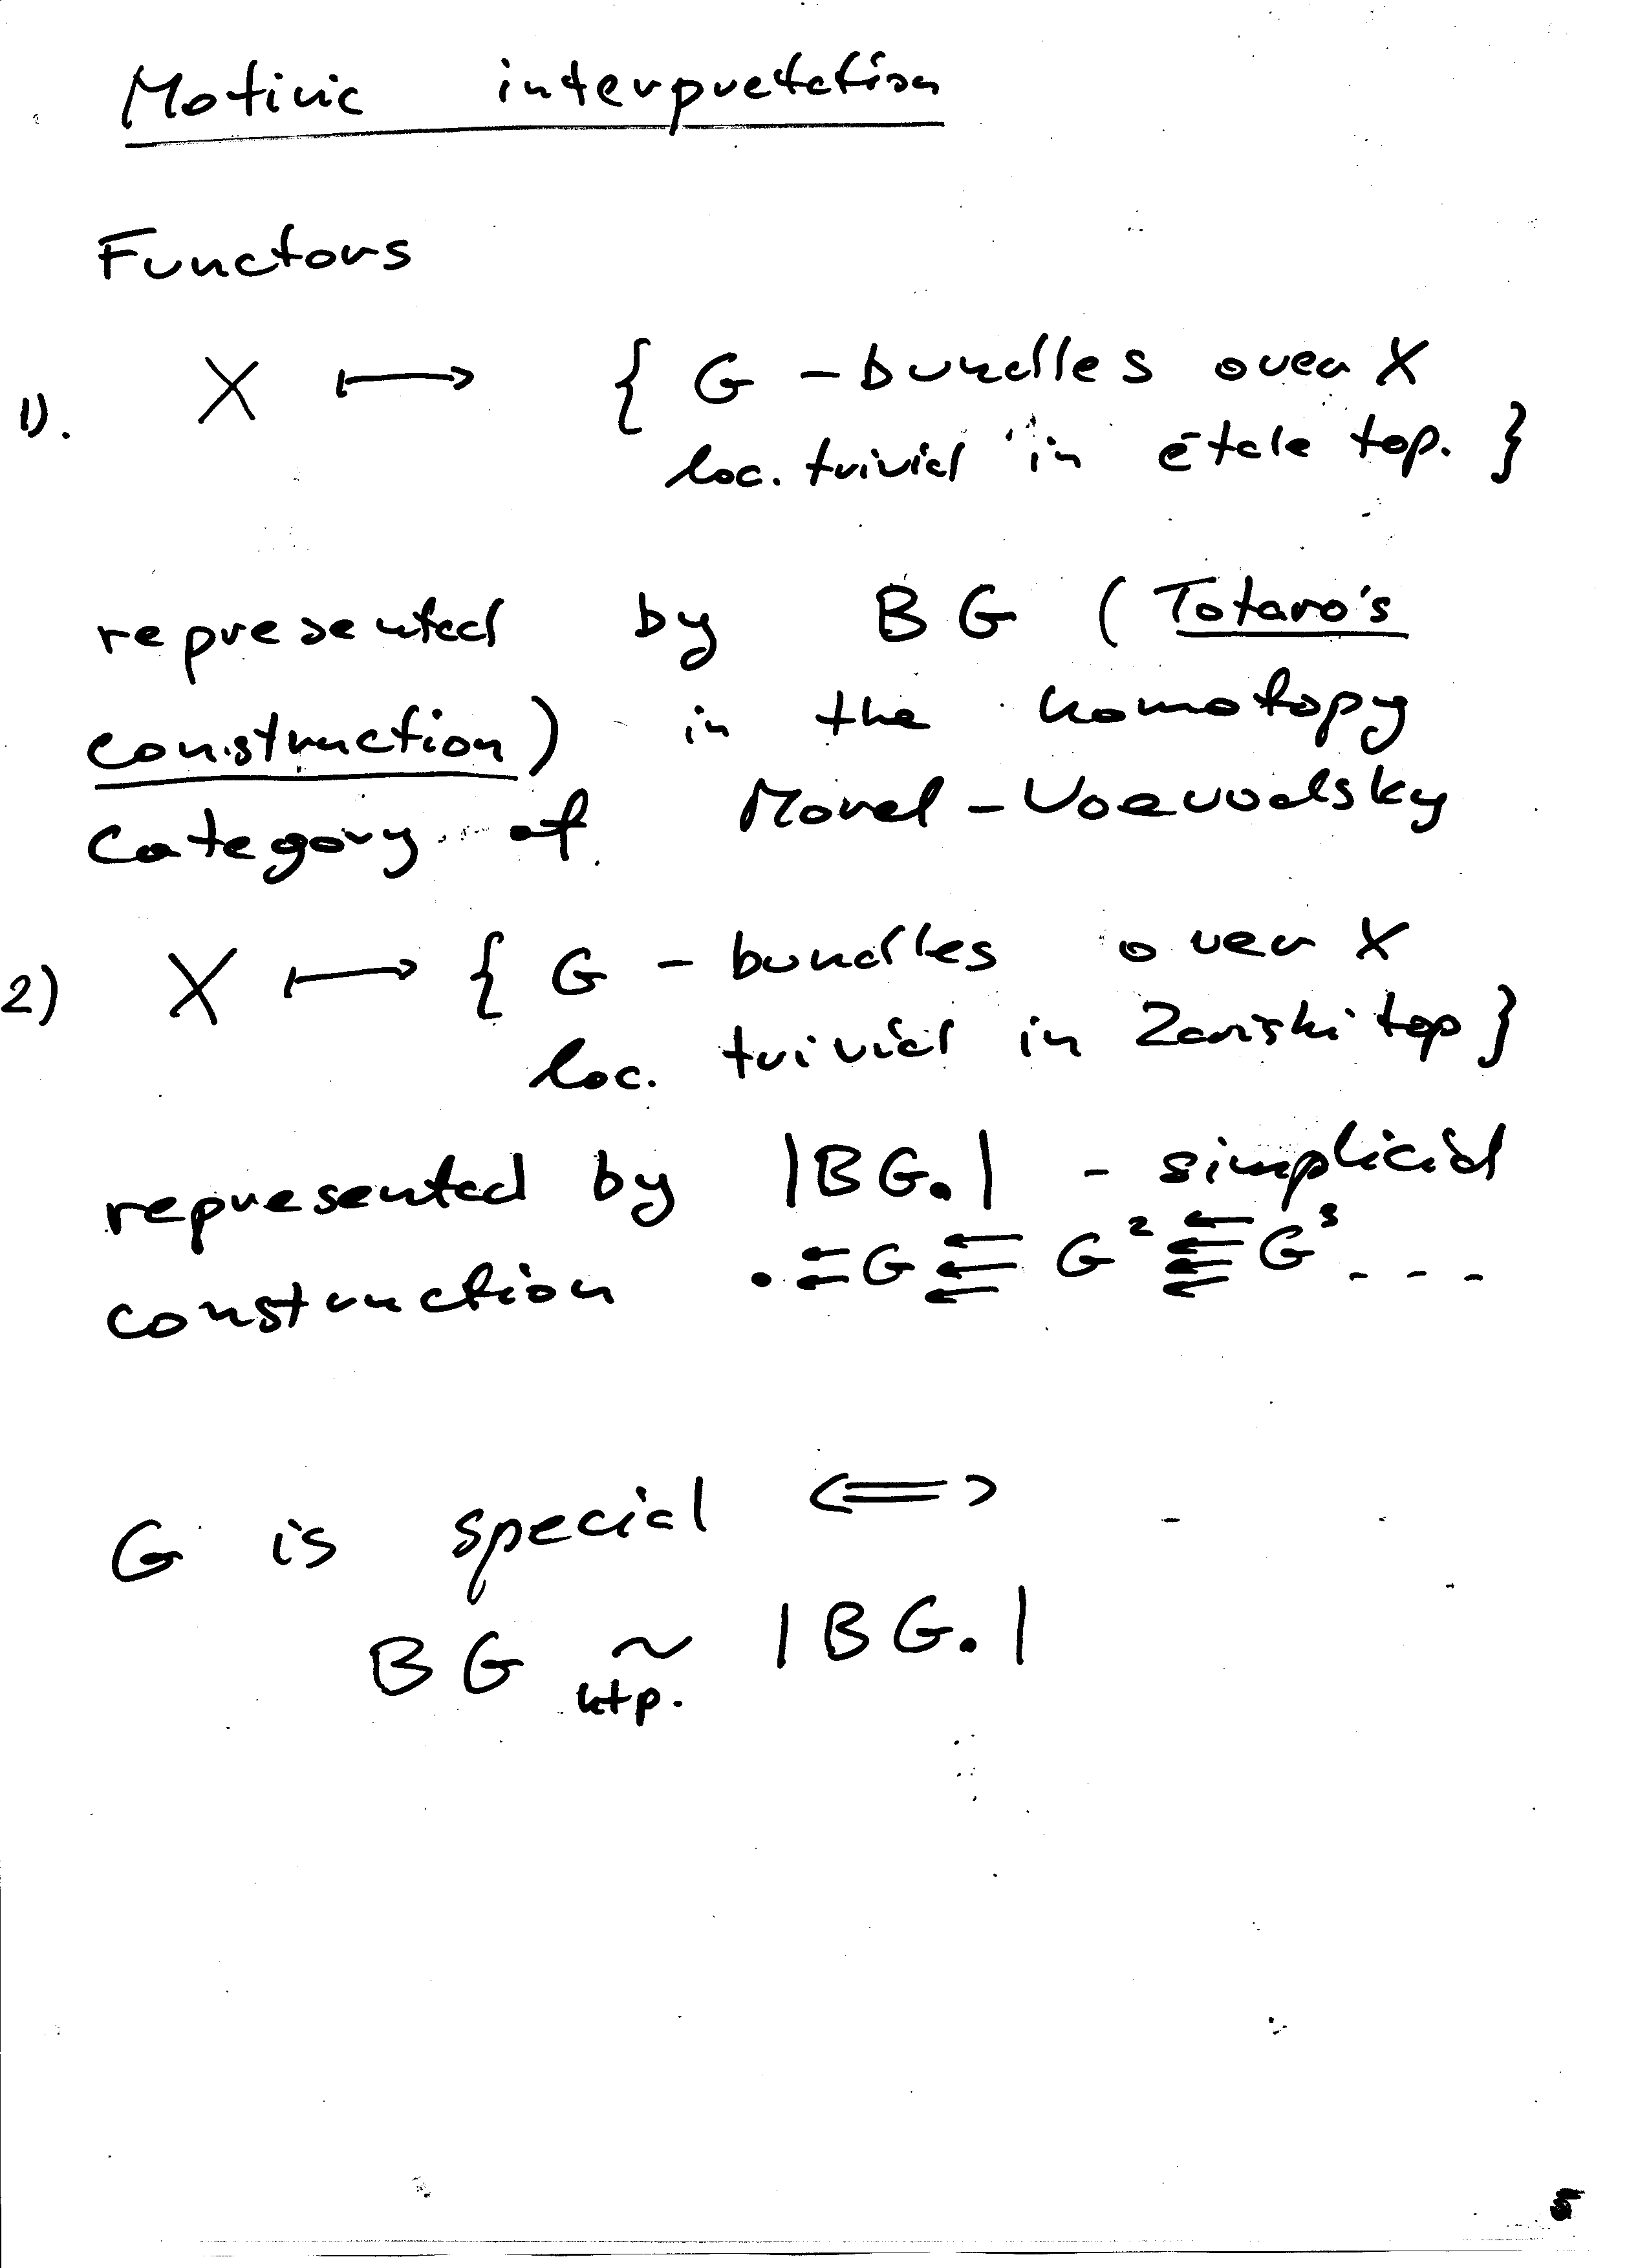 Motivic interpretation
Functors
1). X ⟼ { G - bundles over X
loc. trivial in étale top. }
represented by BG (Totaro's
construction) in the homotopy
category of Morel - Voevodsky
2) X ⟼ { G - bundles over X
loc. trivial in Zariski top }
represented by |BG.| - simplicial
construction . ⇇ G ⇇← G² ⇇⇇ G³ ----
G is special ⟺
BG ~ |BG.|
htp.
5